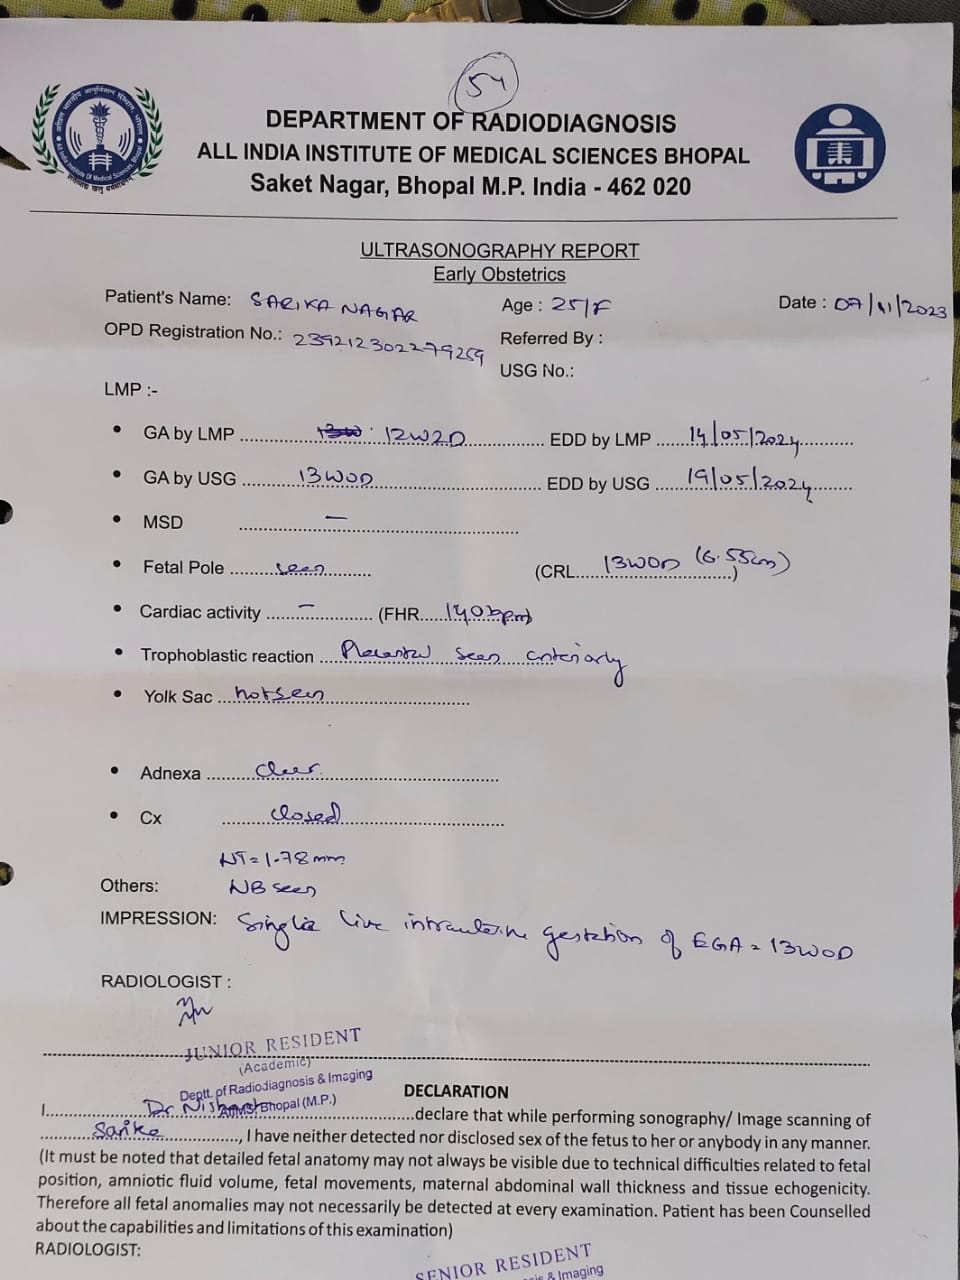 54
DEPARTMENT OF RADIODIAGNOSIS
ALL INDIA INSTITUTE OF MEDICAL SCIENCES BHOPAL
Saket Nagar, Bhopal M.P. India - 462 020
ULTRASONOGRAPHY REPORT
Early Obstetrics
Patient's Name: SARIKA NAGAR Age : 25/F Date : 07/11/2023
OPD Registration No.: 239212302279259 Referred By :
USG No.:
LMP :-
• GA by LMP 12W2D EDD by LMP 14/05/2024
• GA by USG 13W0D EDD by USG 19/05/2024
• MSD —
• Fetal Pole seen (CRL 13W0D (6.55cm)
• Cardiac activity — (FHR 140bpm)
• Trophoblastic reaction Placenta seen anteriorly
• Yolk Sac not seen
• Adnexa clear
• Cx closed
NT = 1.78mm
Others: NB seen
IMPRESSION: Single live intrauterine gestation of EGA = 13W0D
RADIOLOGIST :
JUNIOR RESIDENT
(Academic)
Deptt. of Radiodiagnosis & Imaging
AIIMS Bhopal (M.P.)
DECLARATION
I Dr. declare that while performing sonography/ Image scanning of
Sarika, I have neither detected nor disclosed sex of the fetus to her or anybody in any manner.
(It must be noted that detailed fetal anatomy may not always be visible due to technical difficulties related to fetal
position, amniotic fluid volume, fetal movements, maternal abdominal wall thickness and tissue echogenicity.
Therefore all fetal anomalies may not necessarily be detected at every examination. Patient has been Counselled
about the capabilities and limitations of this examination)
RADIOLOGIST:
SENIOR RESIDENT
& Imaging